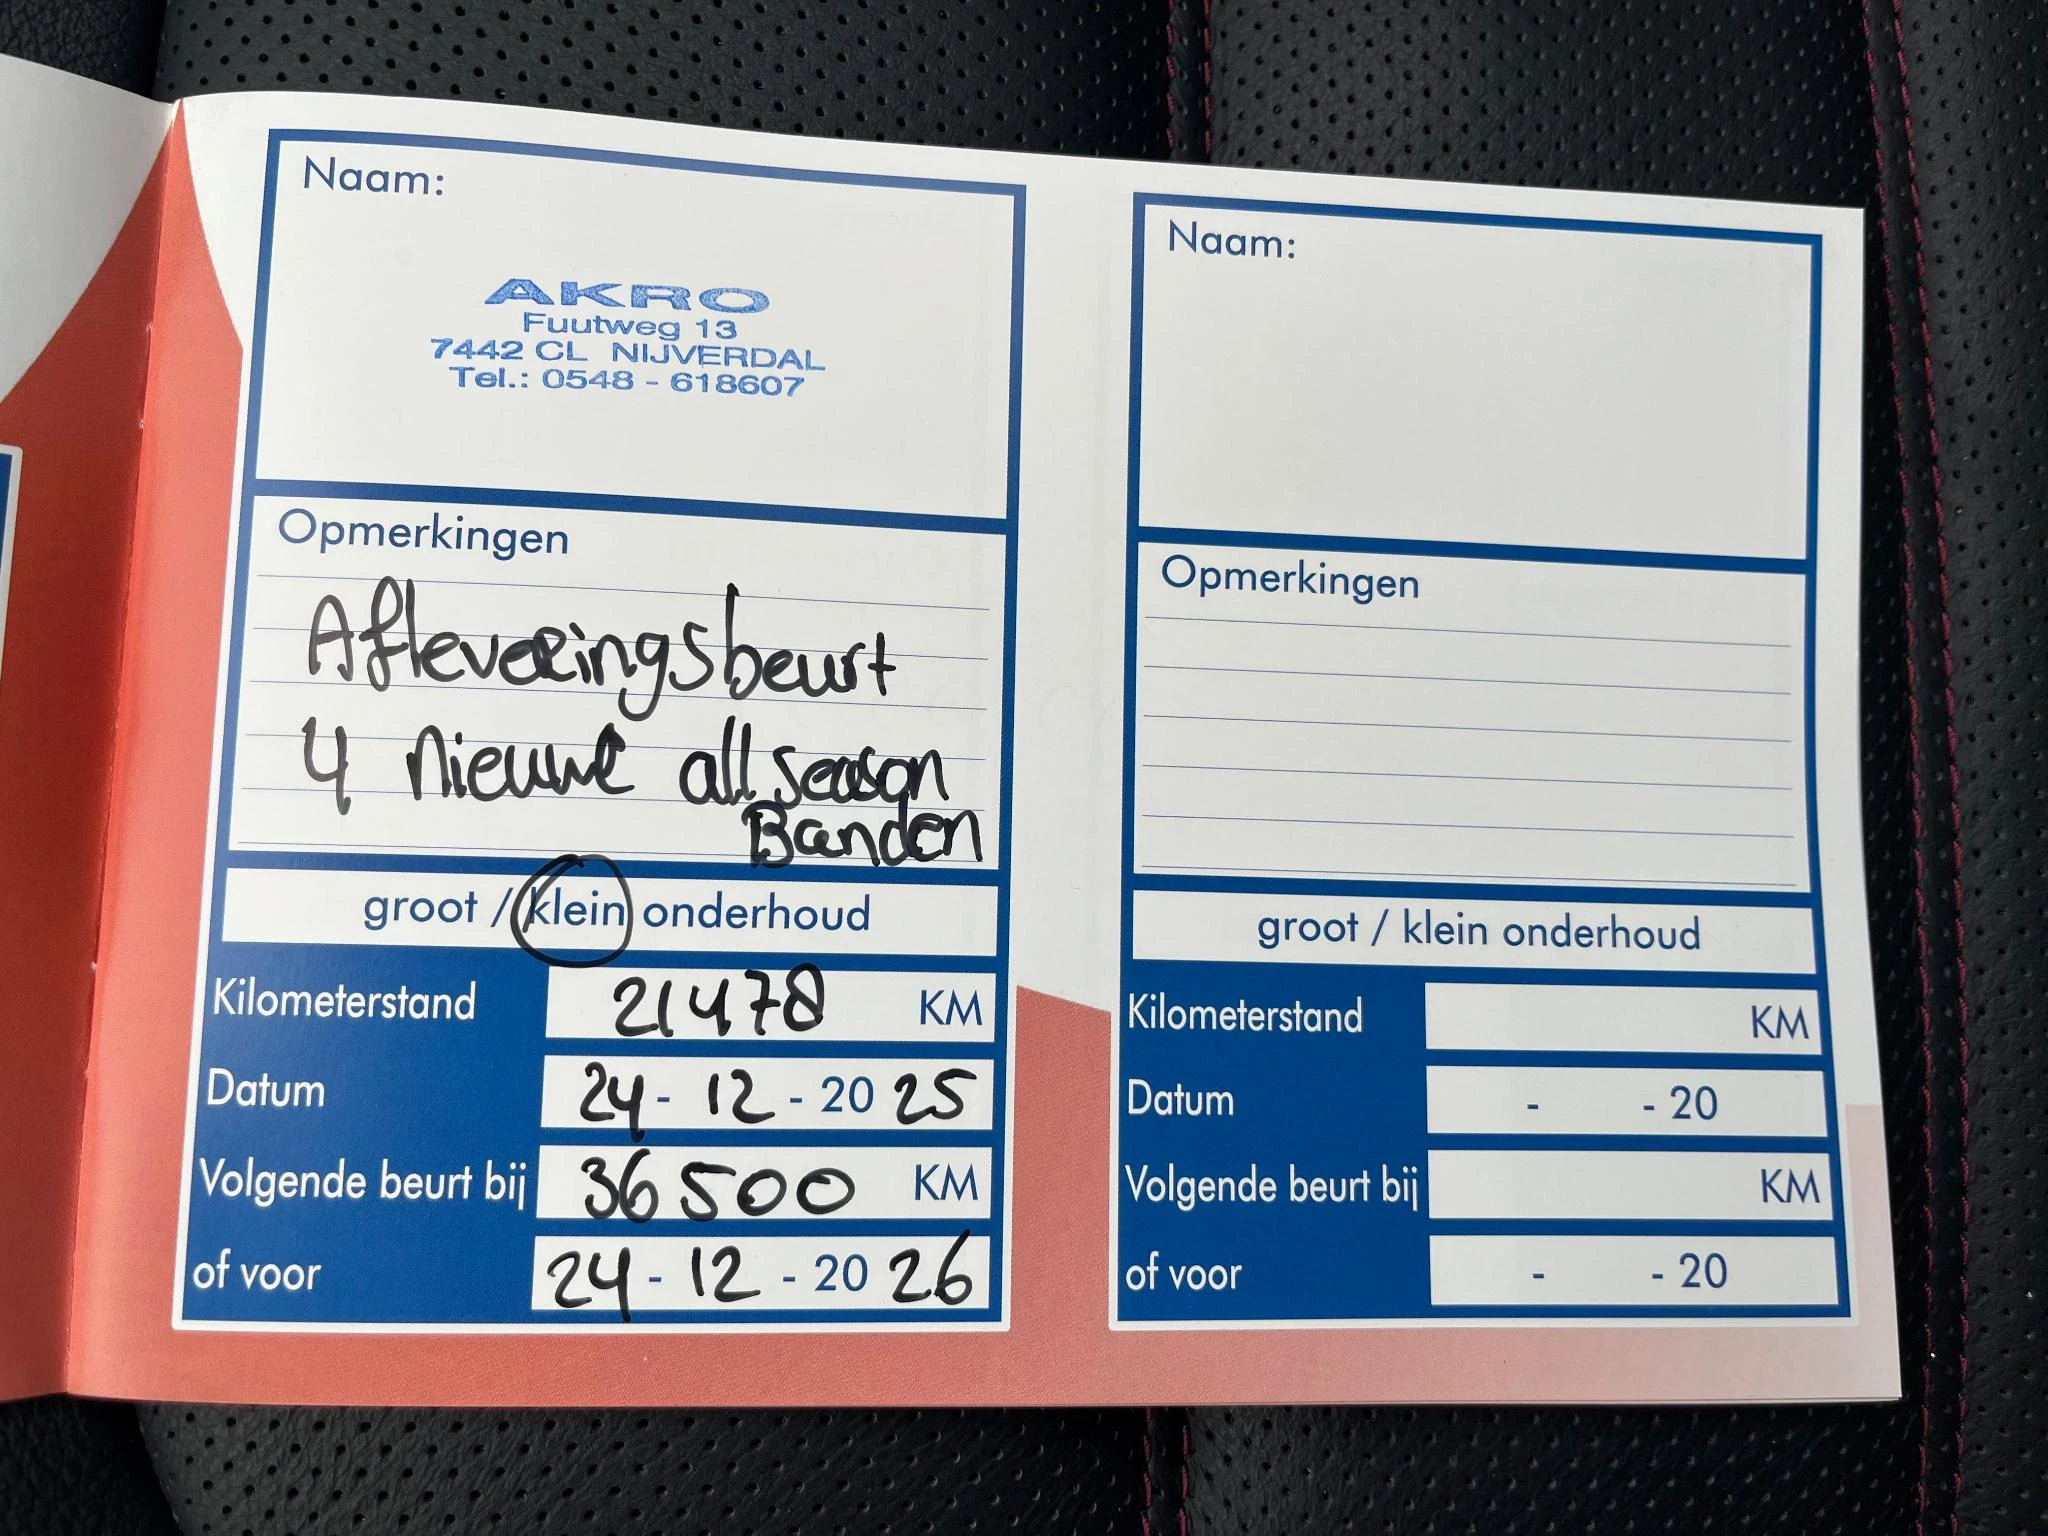 Naam:
AKRO
Fuutweg 13
7442 CL NIJVERDAL
Tel.: 0548 - 618607
Opmerkingen
Afleveringsbeurt
4 nieuwe all season
Banden
groot / klein onderhoud
Kilometerstand 21478 KM
Datum 24 - 12 - 20 25
Volgende beurt bij 36500 KM
of voor 24 - 12 - 20 26
Naam:
Opmerkingen
groot / klein onderhoud
Kilometerstand KM
Datum - - 20
Volgende beurt bij KM
of voor - - 20